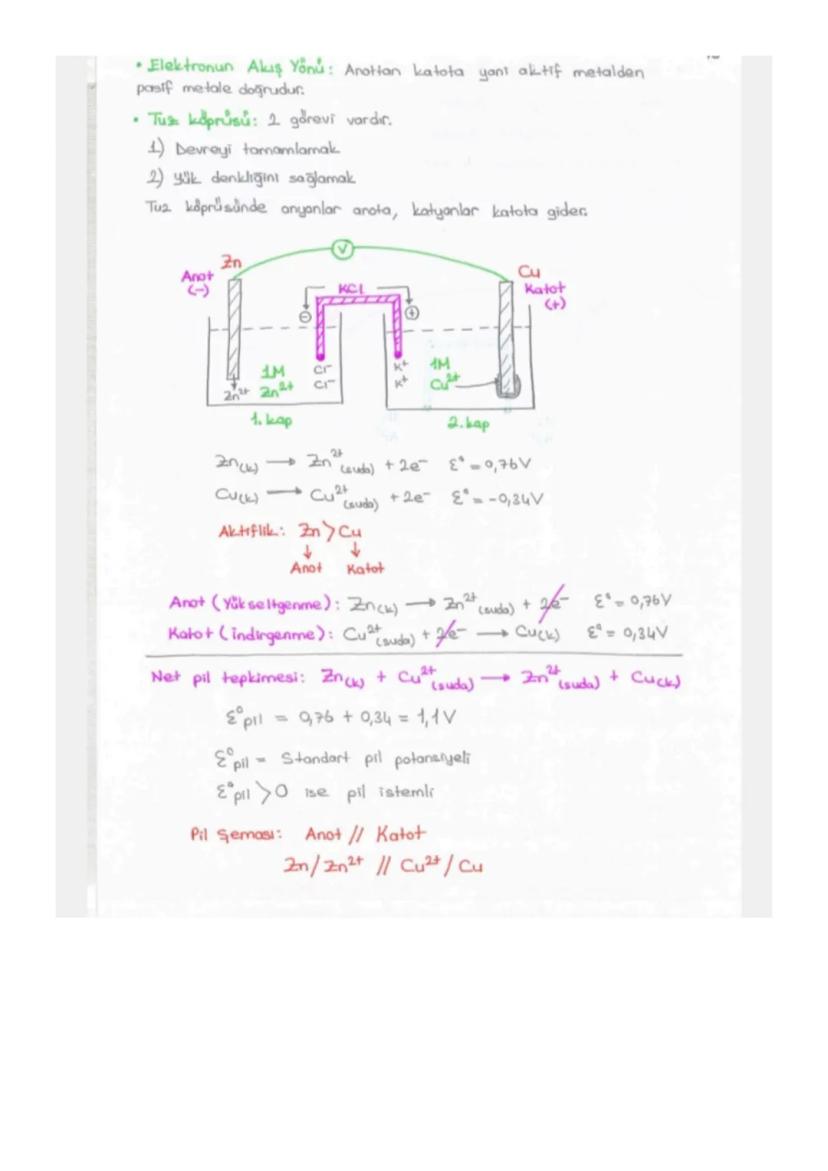 • Elektronun Akış Yönü: Anottan katota yani aktif metalden
pasif metale doğrudur.
• Tuz köprüsü: 2 görevi vardır.
1) Devreyi tamamlamak
2) Yük denkliğini sağlamak
Tuz köprüsünde anyonlar anota, katyonlar katota gider.
V
Zn
Cu
Anot
(-)
KCl
Katot
(+)
⊖
⊕
1M
Zn²⁺
Zn²⁺
Cl⁻
Cl⁻
K⁺
K⁺
1M
Cu²⁺
1. kap
2. kap
Zn(k) → Zn²⁺(suda) + 2e⁻ Ɛ° = 0,76V
Cu(k) → Cu²⁺(suda) + 2e⁻ Ɛ° = -0,34V
Aktiflik: Zn > Cu
↓ ↓
Anot Katot
Anot (Yükseltgenme): Zn(k) → Zn²⁺(suda) + 2e⁻ Ɛ° = 0,76V
Katot (indirgenme): Cu²⁺(suda) + 2e⁻ → Cu(k) Ɛ° = 0,34V
Net pil tepkimesi: Zn(k) + Cu²⁺(suda) → Zn²⁺(suda) + Cu(k)
Ɛ°pil = 0,76 + 0,34 = 1,1V
Ɛ°pil = Standart pil potansiyeli
Ɛ°pil > 0 ise pil istemli
Pil Şeması: Anot // Katot
Zn/Zn²⁺ // Cu²⁺/Cu